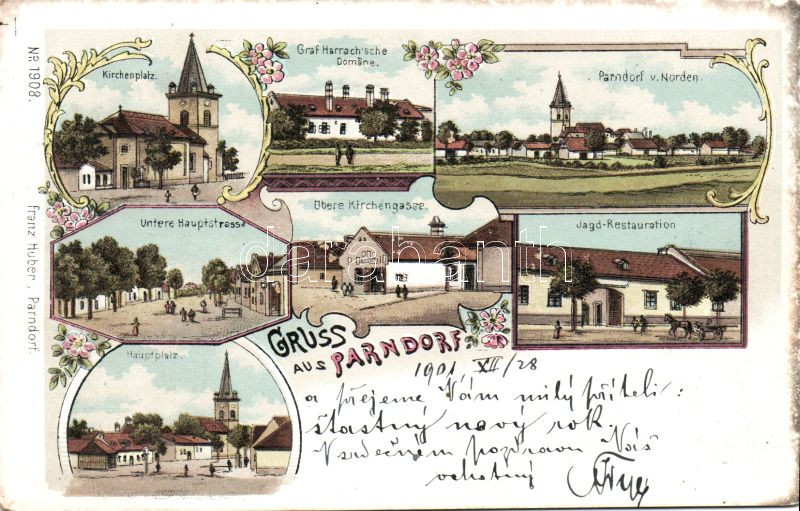 Kirchenplatz.
Graf Harrach'sche
Domäne.
Parndorf v. Norden.
Untere Hauptstrasse
Obere Kirchengasse.
Jagd-Restauration
Hauptplatz.
GRUSS
AUS PARNDORF
Nr. 1908.
Franz Huber, Parndorf.
darabanth
1901 XII/28
a přejeme Vám milý příteli:
šťastný nový rok.
Nasrdečném pozdravu Váš
ochotný